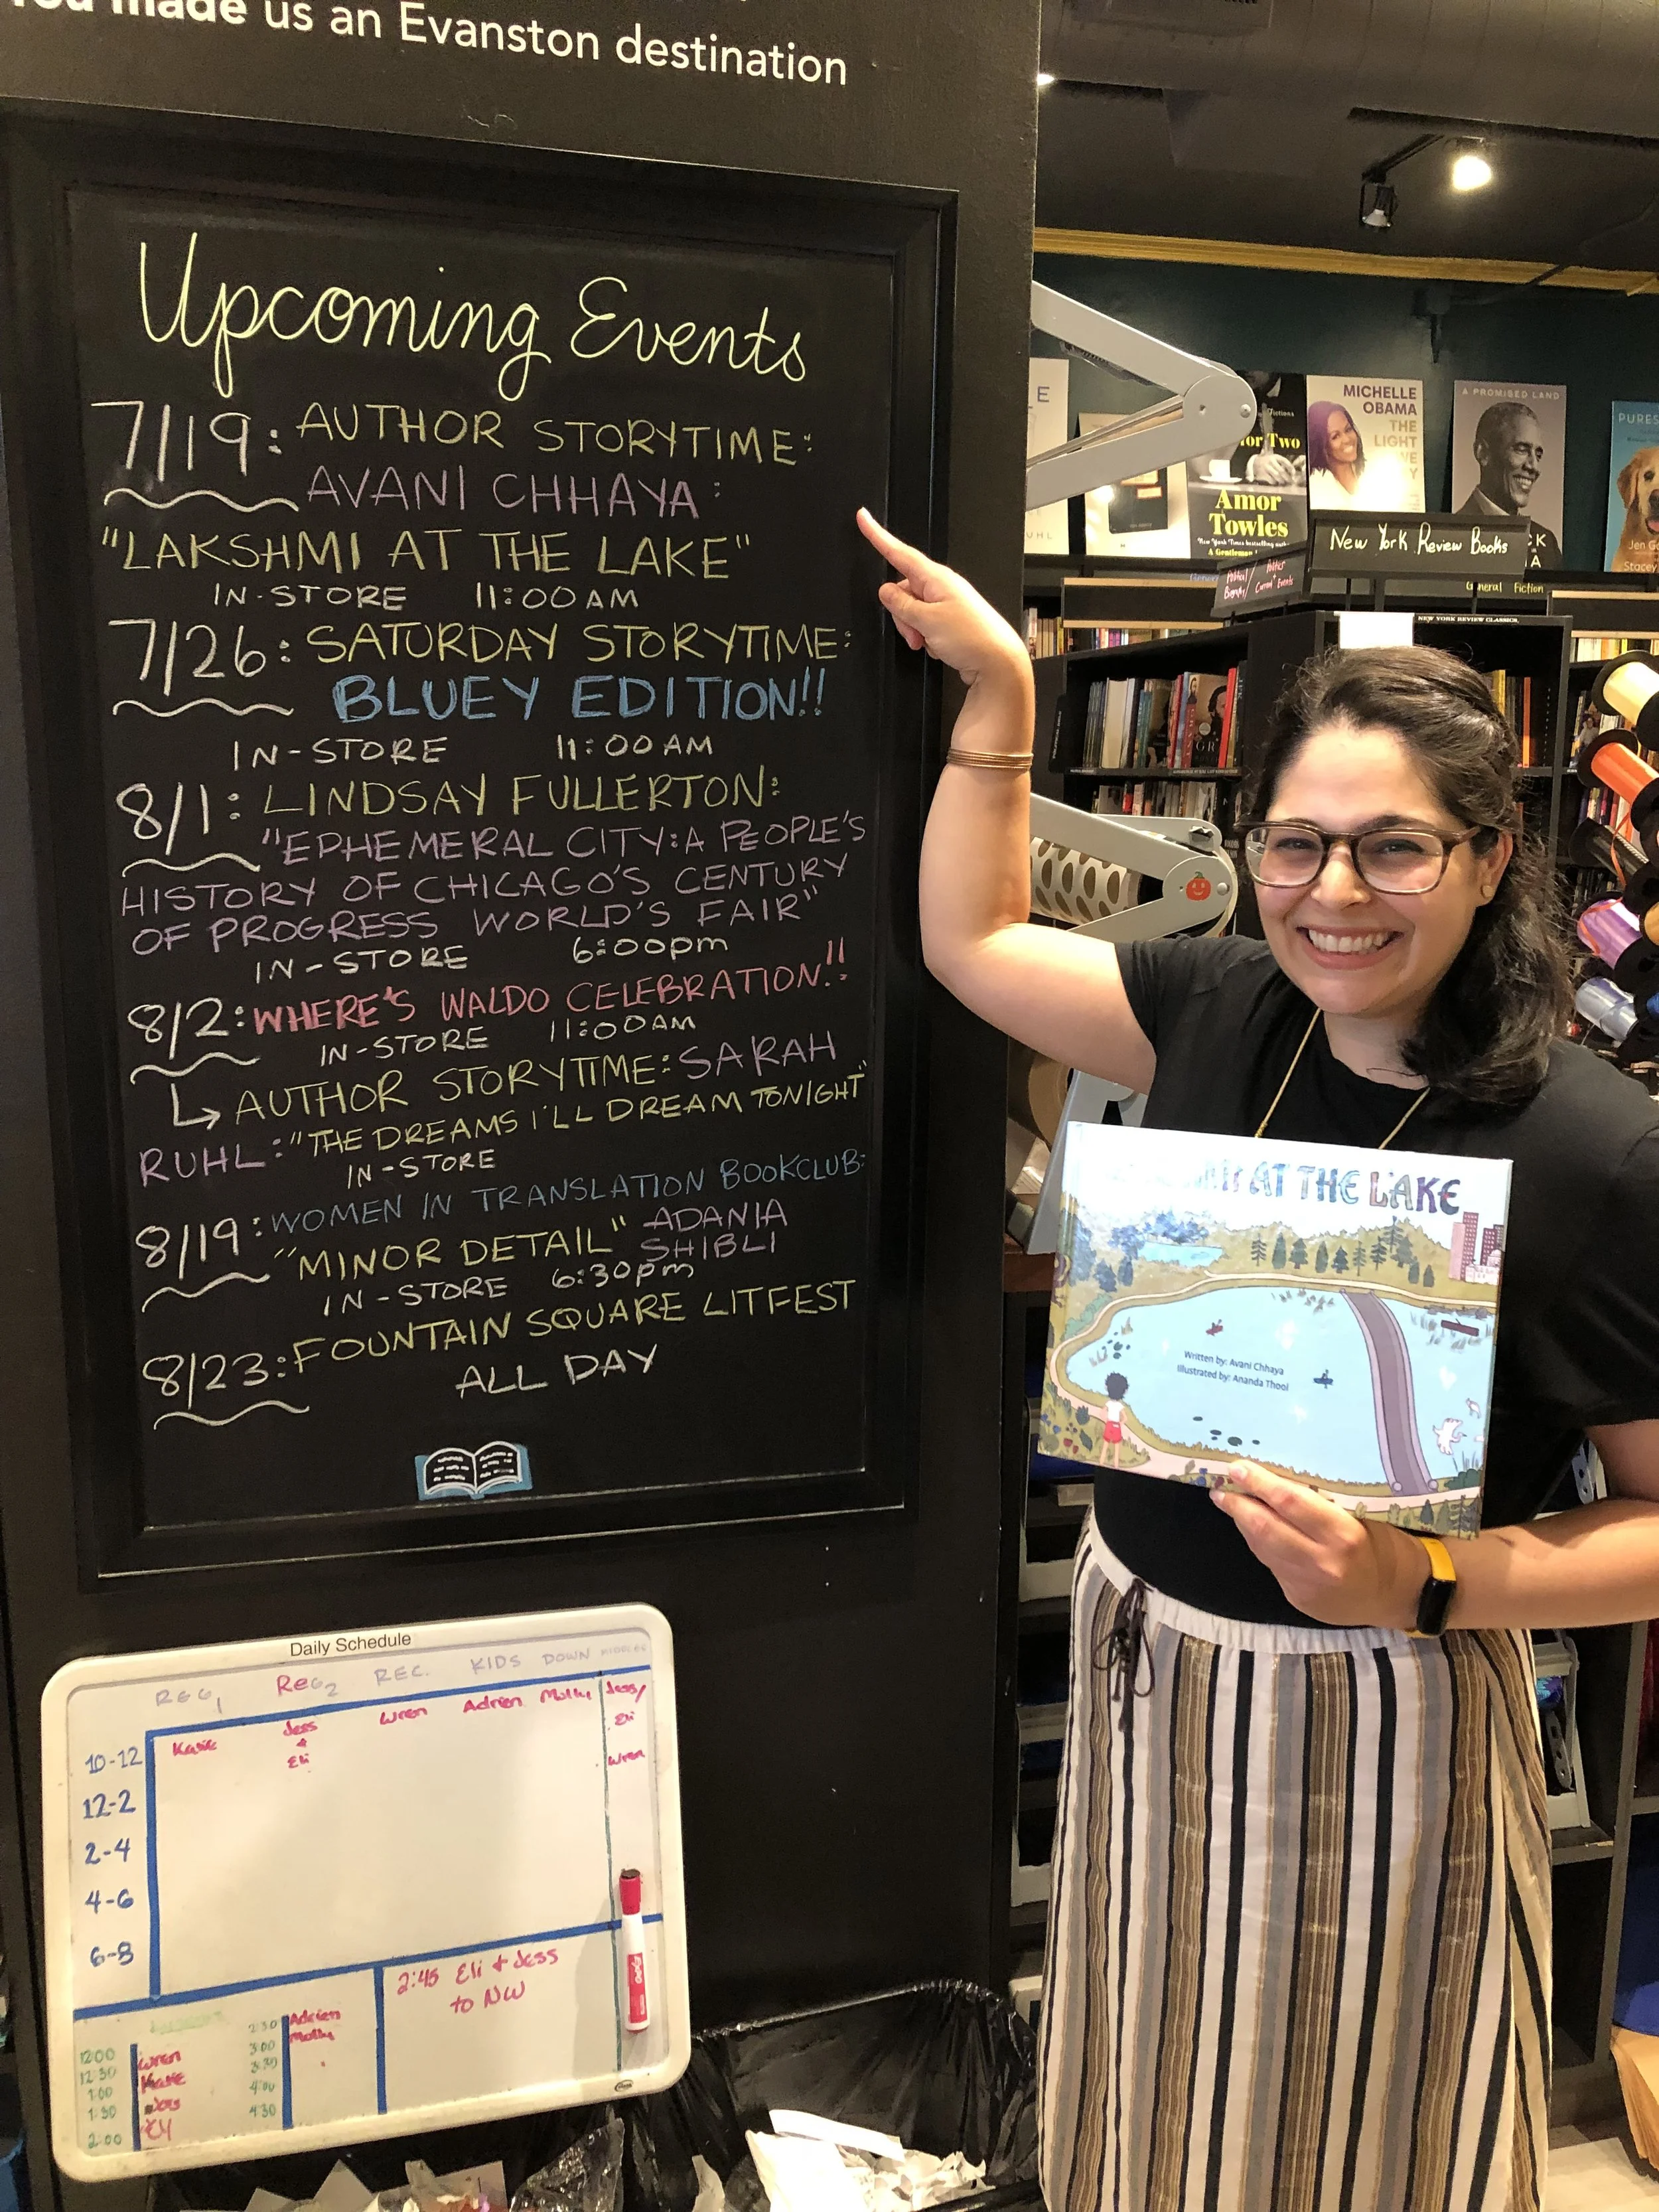 made us an Evanston destination
Upcoming Events
7/19: AUTHOR STORYTIME:
AVANI CHHAYA:
"LAKSHMI AT THE LAKE"
IN-STORE 11:00 AM
7/26: SATURDAY STORYTIME:
BLUEY EDITION!!
IN-STORE 11:00 AM
8/1: LINDSAY FULLERTON:
"EPHEMERAL CITY: A PEOPLE'S
HISTORY OF CHICAGO'S CENTURY
OF PROGRESS WORLD'S FAIR"
IN-STORE 6:00pm
8/2: WHERE'S WALDO CELEBRATION!!
IN-STORE 11:00AM
↳ AUTHOR STORYTIME: SARAH
RUHL: "THE DREAMS I'LL DREAM TONIGHT"
IN-STORE
8/19: WOMEN IN TRANSLATION BOOKCLUB:
"MINOR DETAIL" ADANIA
SHIBLI
IN-STORE 6:30pm
8/23: FOUNTAIN SQUARE LITFEST
ALL DAY
Daily Schedule
REG1 REG2 REC. KIDS DOWN
Katie Jess & Eli Wren Adrien Molly Jess/
Eli
Wren
10-12
12-2
2-4
4-6
6-8
2:45 Eli + Jess
to NW
12:00 Wren
12:30 Katie
1:00 Jess
1:30 Eli
2:00
2:30 Adrien
3:00 Molly
3:30
4:00
4:30
Amor
Towles
MICHELLE
OBAMA
THE
LIGHT
A PROMISED LAND
PURES
Jen
Stacey
New York Review Books
General Fiction
NEW YORK REVIEW CLASSICS
AT THE LAKE
Written by: Avani Chhaya
Illustrated by: Ananda Thool